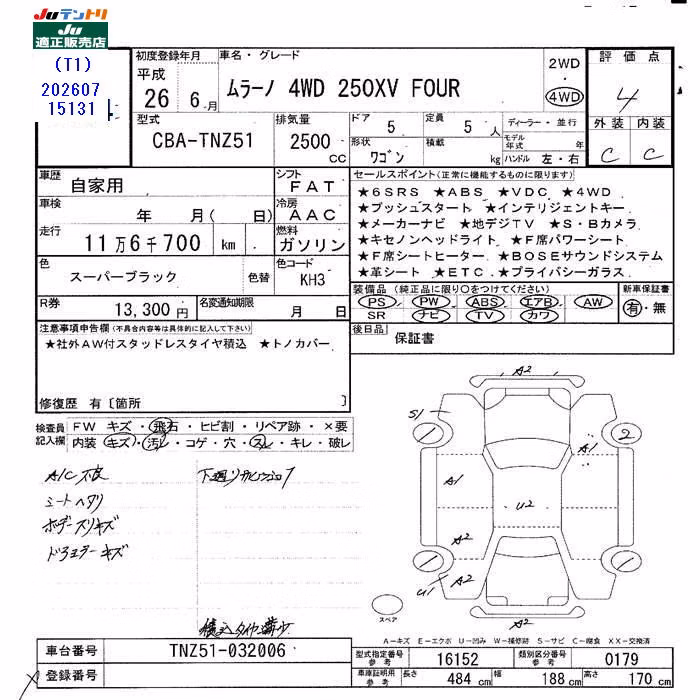 Juテントリ
Ju
適正販売店
(T1)
202607
15131
初度登録年月
平成
26 6月
車名・グレード
ムラーノ 4WD 250XV FOUR
2WD
・
4WD
評価点
4
外装 内装
C C
型式
CBA-TNZ51
排気量
2500
cc
ドア 5
定員 5 人
ディーラー・並行
形状 ワゴン
積載 kg
モデル年式 年
ハンドル 左・右
車歴 自家用
シフト FAT
車検 年 月( 日)
冷房 AAC
走行 11万6千700 km
燃料 ガソリン
色 スーパーブラック 色替
色コード KH3
R券 13,300円
名変通知期限 月 日
セールスポイント(正常に機能するものに限ります)
★6SRS ★ABS ★VDC ★4WD
★プッシュスタート ★インテリジェントキー
★メーカーナビ ★地デジTV ★S・Bカメラ
★キセノンヘッドライト ★F席パワーシート
★F席シートヒーター ★BOSEサウンドシステム
★革シート ★ETC ★プライバシーガラス
装備品(純正品に限り○をつけてください)
PS PW ABS エアB AW
SR ナビ TV カワ
新車保証書
有・無
後日品 保証書
注意事項申告欄(不具合内容等は具体的に記入して下さい)
★社外AW付スタッドレスタイヤ積込 ★トノカバー
修復歴 有〔箇所 〕
検査員記入欄
FW キズ・飛石・ヒビ割・リペア跡・×要
内装 キズ・汚レ・コゲ・穴・スレ・キレ・破レ
A/C不良
シートヘタリ
ボデースリキズ
ドアミラーキズ
積込タイヤ溝少
A2
S1
2
A1
A1
U2
A2
A2
U1
A2
A2
スペア
A-キズ E-エクボ U-凹み W-補修跡 S-サビ C-腐食 XX-交換済
車台番号 TNZ51-032006
登録番号
型式指定番号参考 16152
類別区分番号参考 0179
車庫証明用参考 長さ 484cm 幅 188cm 高さ 170cm